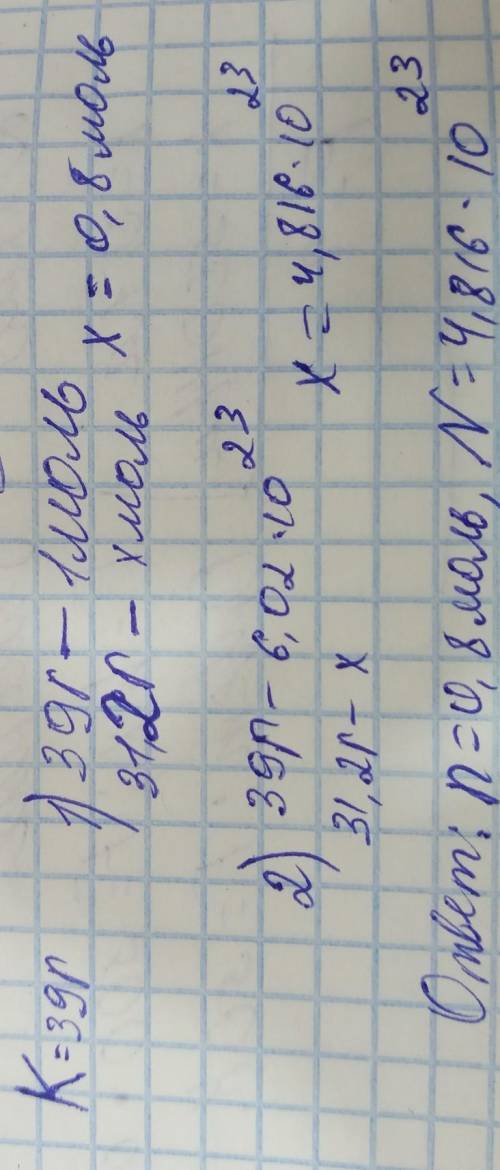 K=39г
1) 39г – 1моль
31,2г – x моль x = 0,8 моль
2) 39г – 6,02·10²³
31,2г – x x = 4,816·10²³
Ответ: n=0,8 моль, N=4,816·10²³